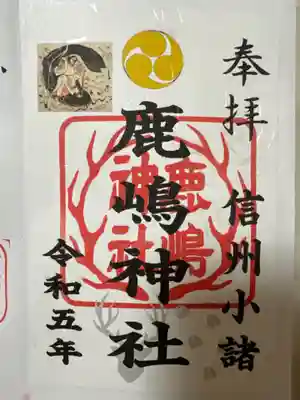 奉拝
信州小諸
鹿嶋神社
鹿嶋
神社
令和五年